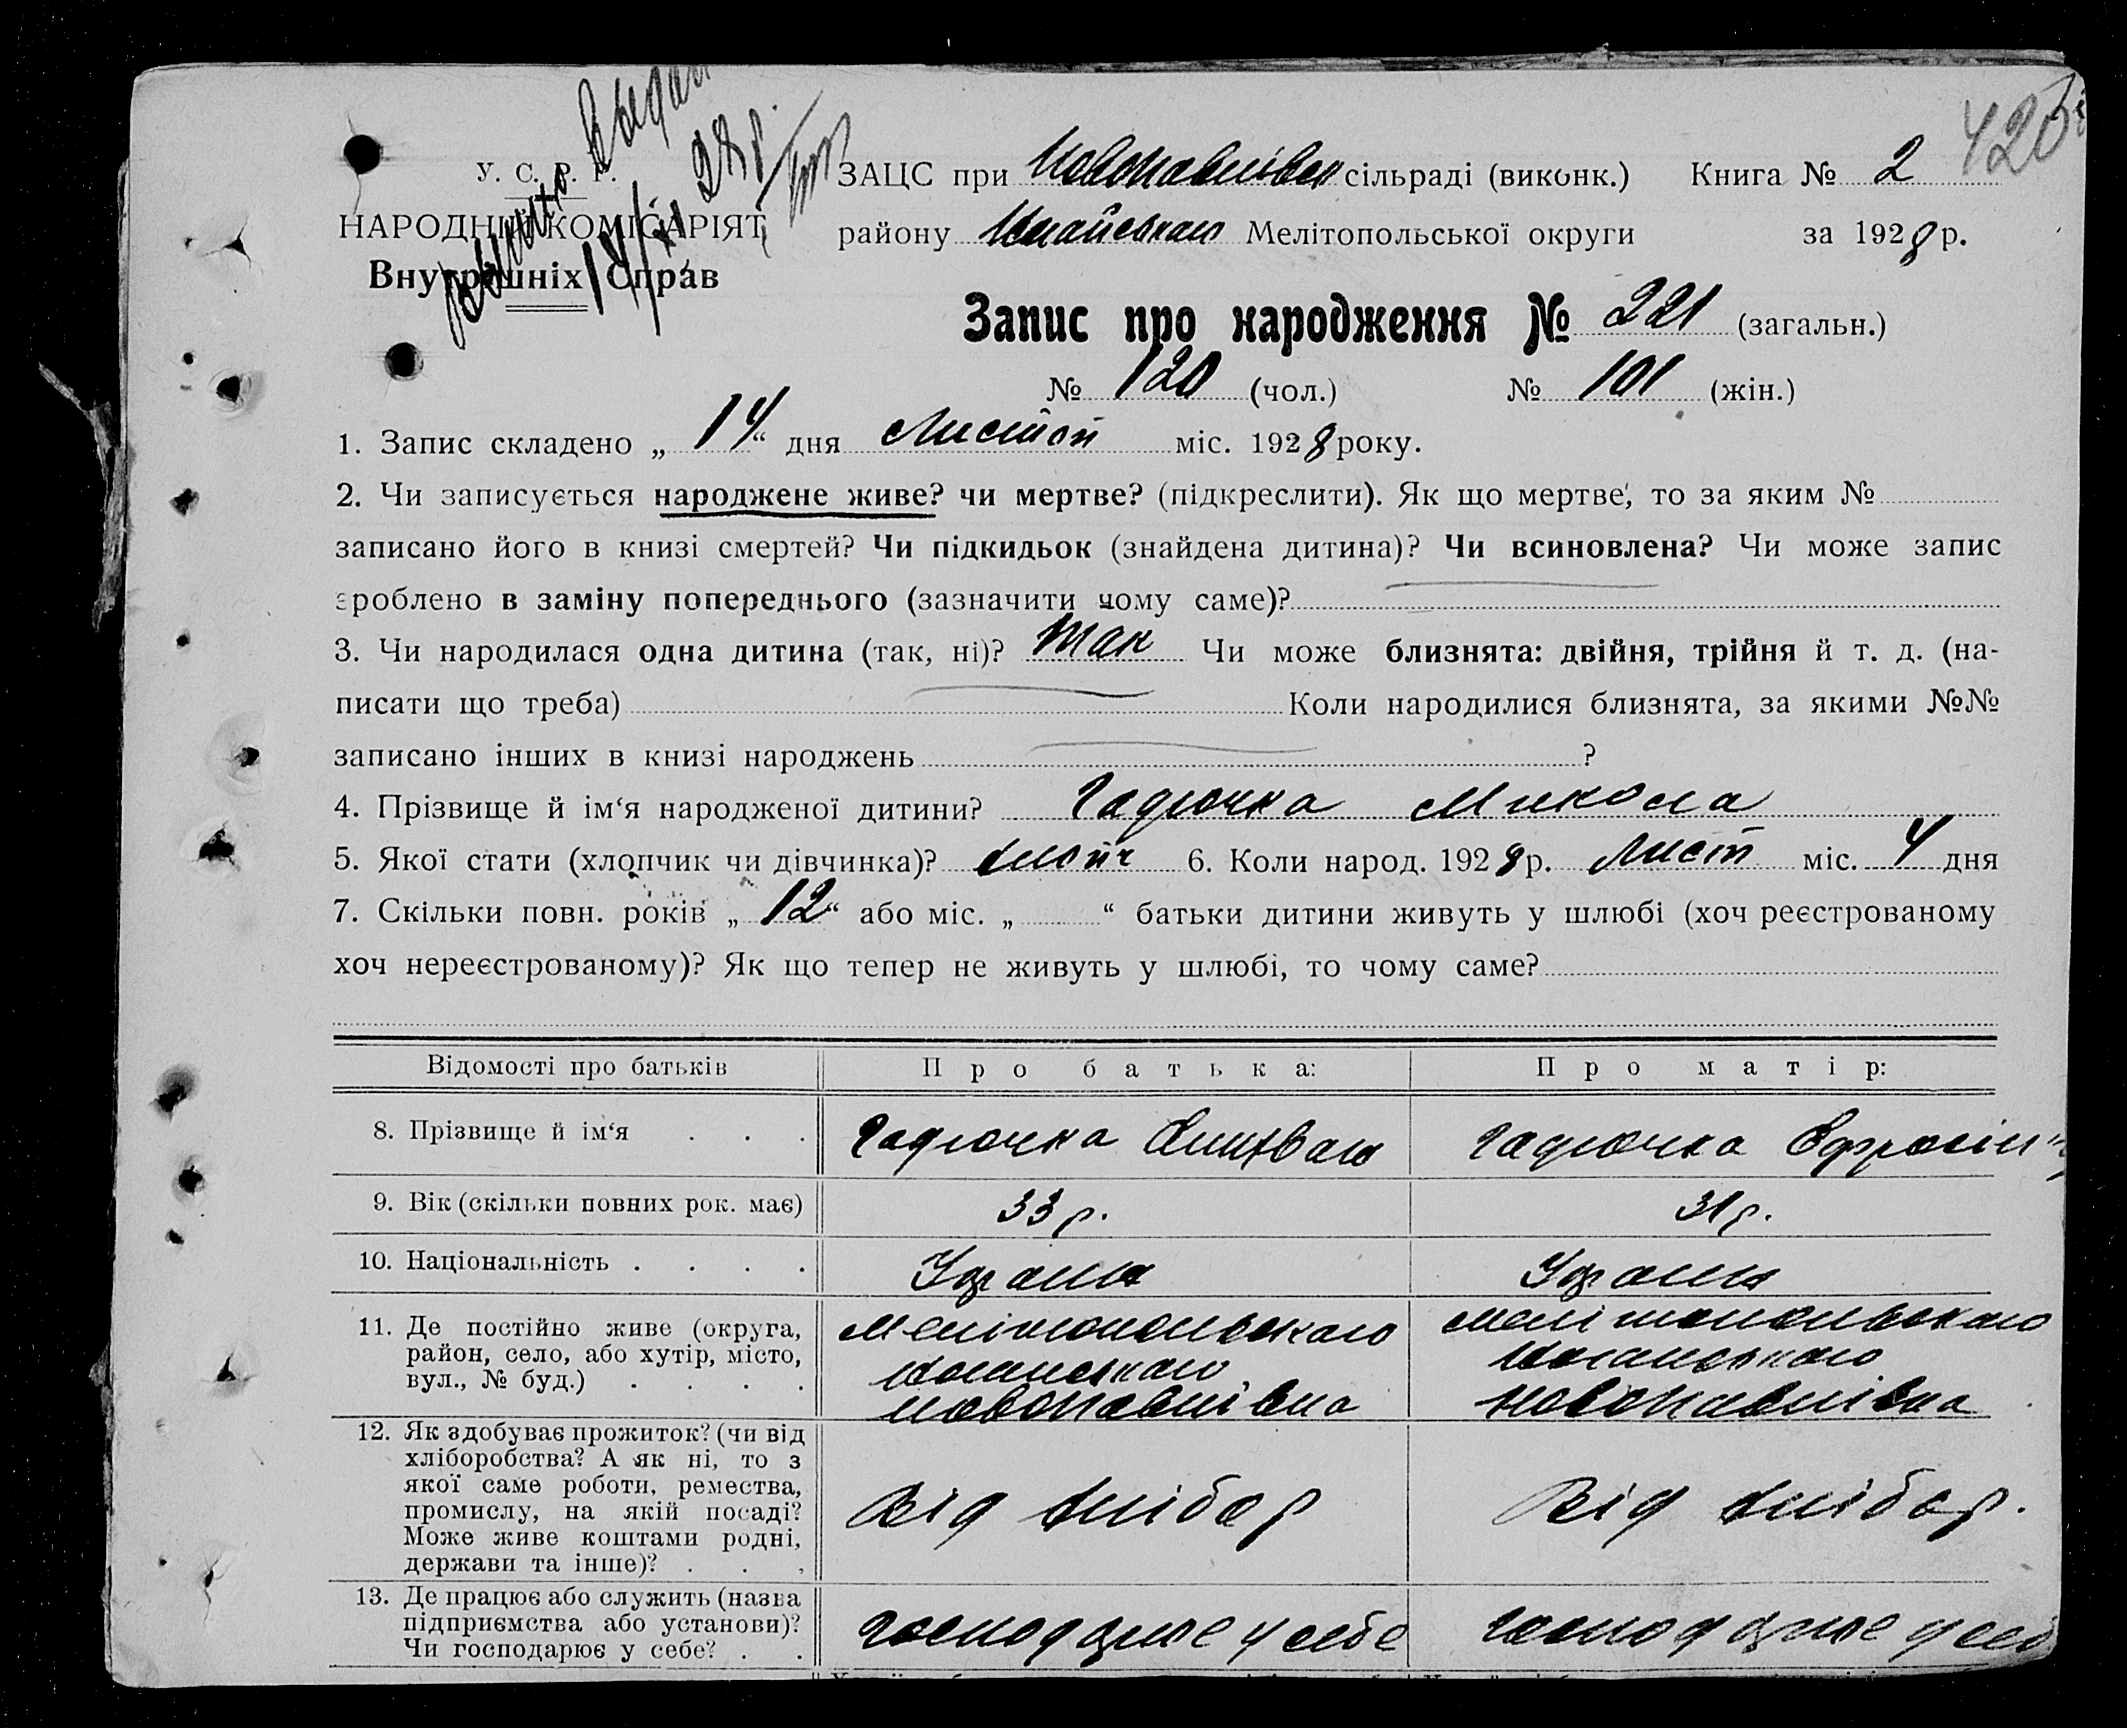 420
У. С. Р. Р.
НАРОДНІЙ КОМІСАРІЯТ
Внутрішніх Справ
ЗАЦС при Новопавлівск сільраді (виконк.) Книга № 2
району Мелітопольської округи за 1928 р.
Запис про народження № 221 (загальн.)
№ 120 (чол.) № 101 (жін.)
1. Запис складено „ 14 “ дня Листоп міс. 1928 року.
2. Чи записується народжене живе? чи мертве? (підкреслити). Як що мертве, то за яким №
записано його в книзі смертей? Чи підкидьок (знайдена дитина)? Чи всиновлена? Чи може запис
зроблено в заміну попереднього (зазначити чому саме)?
3. Чи народилася одна дитина (так, ні)? Так Чи може близнята: двійня, трійня й т. д. (на-
писати що треба) Коли народилися близнята, за якими №№
записано інших в книзі народжень ?
4. Прізвище й ім‘я народженої дитини? Гадючка Микола
5. Якої стати (хлопчик чи дівчинка)? хлопч 6. Коли народ. 1928 р. Лист міс. 4 дня
7. Скільки повн. років „ 12 “ або міс. „ “ батьки дитини живуть у шлюбі (хоч реєстрованому
хоч нереєстрованому)? Як що тепер не живуть у шлюбі, то чому саме?
Відомості про батьків Про батька: Про матір:
8. Прізвище й ім‘я . . . Гадючка Гадючка Ефросін
9. Вік (скільки повних рок. має) 33 р. 31 р.
10. Національність . . . . Україн Україн
11. Де постійно живе (округа, Мелітопольского Мелітопольского
район, село, або хутір, місто,
вул., № буд.) . . . . Новопавлівка Новопавлівка
12. Як здобуває прожиток? (чи від
хліборобства? А як ні, то з
якої саме роботи, ремества,
промислу, на якій посаді? Від хлібор Від хлібор.
Може живе коштами родні,
держави та інше)? . . .
13. Де працює або служить (назва
підприємства або установи)? господарює у себе господарює у себе
Чи господарює у себе? . .